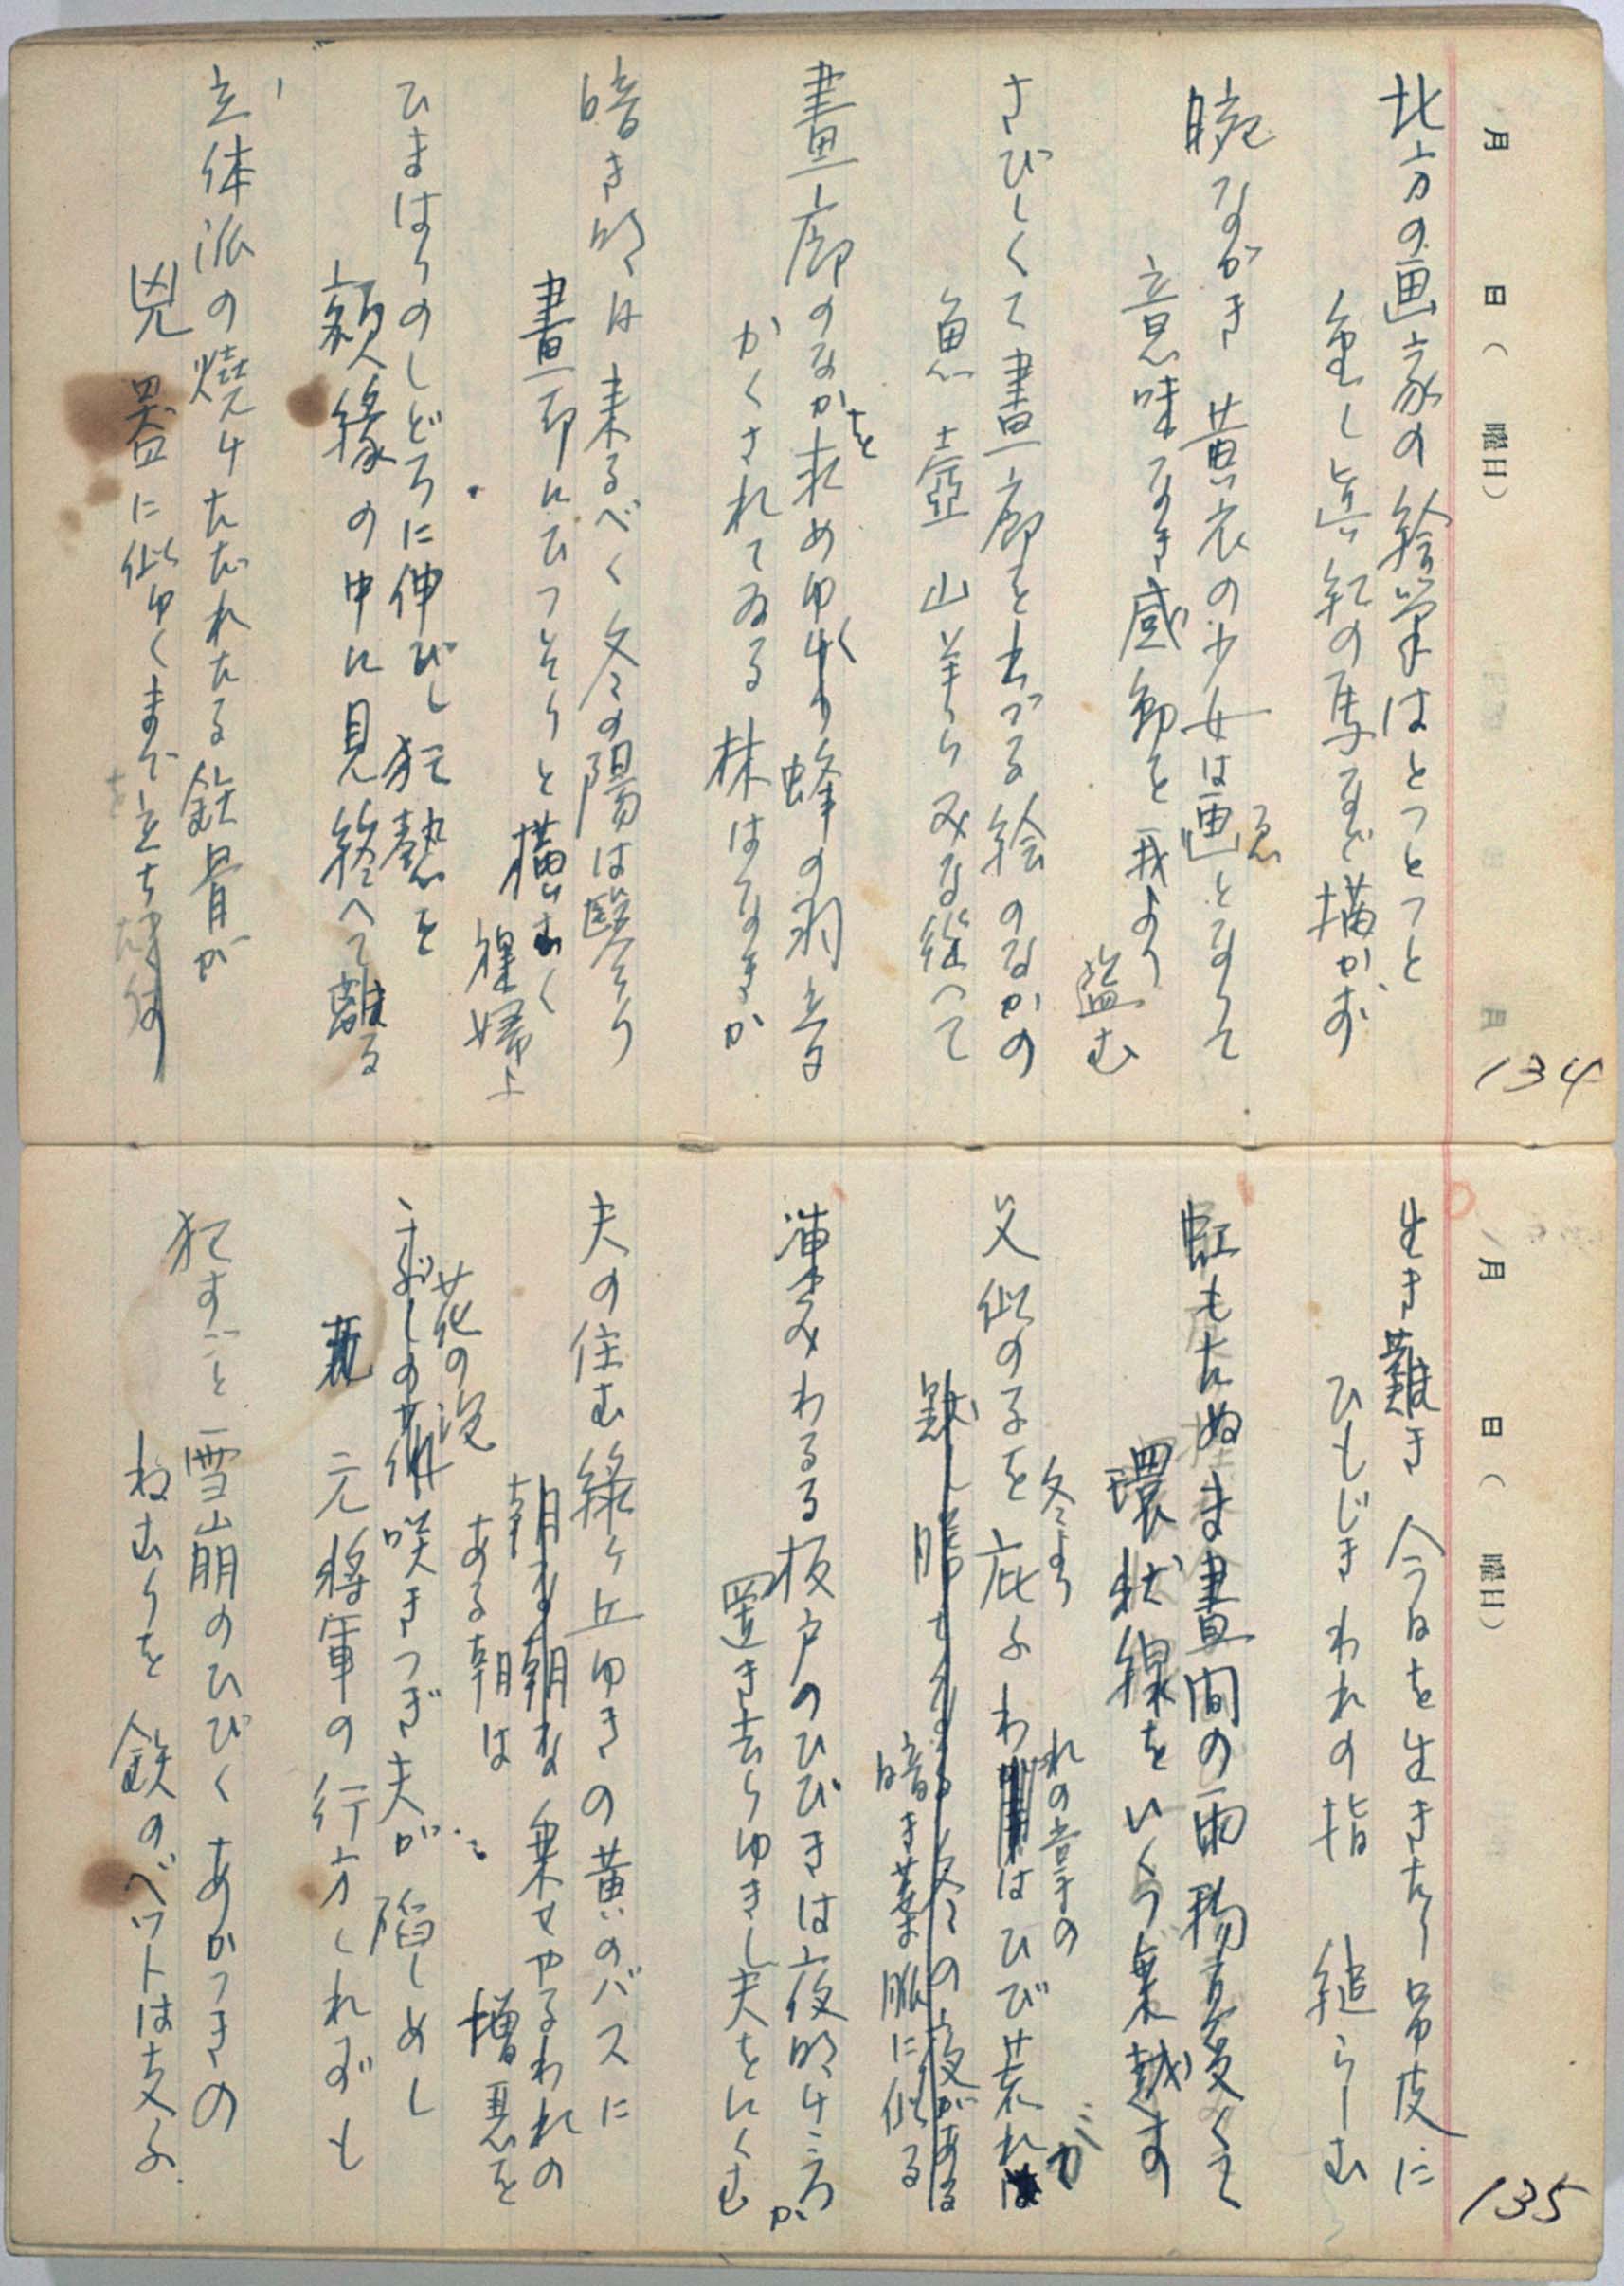 月 日（ 曜日）
134
北方の画家の絵筆はとつとつと
重し真紅の馬など描かず
腕ながき 黄衣の少女は画となりて
意味なき感動を我より
盗む
さびしくて畫廊を出づる絵のなかの
魚 壺 山羊らみな従へて
畫廊のなかを求めゆく蜂の羽立
かくされてゐる株はなきか
暗き町は来るべく冬の陽は翳り
畫廊にひつそりと横むく
裸婦上
ひまはりのしどろに伸びし狂熱を
額縁の中に見終へて離る
立体派の焼けたたれたる鉄骨が
兇器に似ゆくまで立ち
を
月 日（ 曜日）
135
生き難き 今日を生きたり 吊皮に
ひもじきわれの指 縋らしむ
虹もたぬま晝間の雨 物音多くて
環状線をいくつ乗越す
冬より れの掌の
父似の子を庇ふわ はひび荒れ
が
暗き葉脈に似る
凍みわるる板戸のひびきは夜明けごろか
置き去りゆきし夫をにくむ
夫の住む緑ヶ丘ゆきの黄のバスに
朝な朝な乗せやるわれの
ある朝は 憎悪を
花の
咲きつぎ夫が陥しめし
元将軍の行方しれずも
犯すごと雪崩のひびくあかつきの
ねむりを 鉄のベットは支ふ